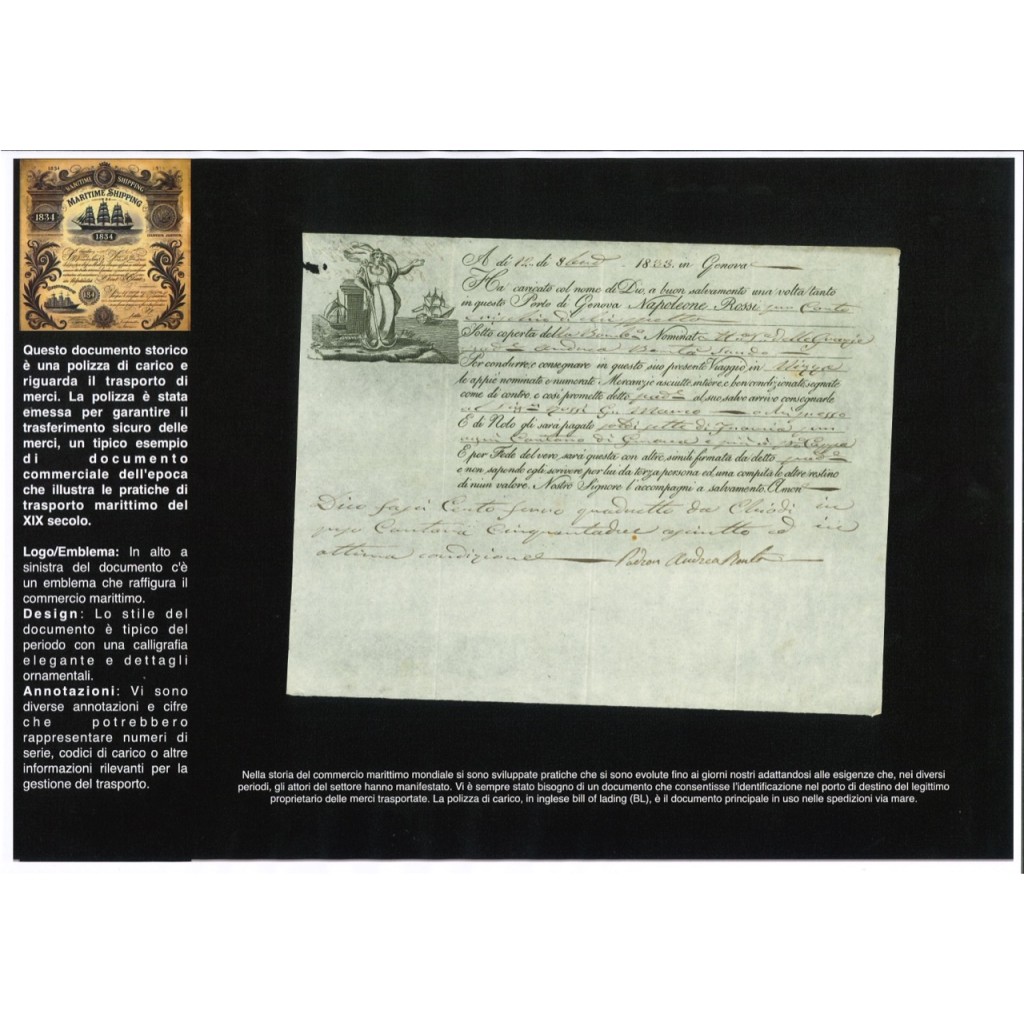 1834
MARITIME SHIPPING
MARITIME SHIPPING
1834
1834
Questo documento storico
è una polizza di carico e
riguarda il trasporto di
merci. La polizza è stata
emessa per garantire il
trasferimento sicuro delle
merci, un tipico esempio
di documento
commerciale dell'epoca
che illustra le pratiche di
trasporto marittimo del
XIX secolo.
Logo/Emblema: In alto a
sinistra del documento c'è
un emblema che raffigura il
commercio marittimo.
Design: Lo stile del
documento è tipico del
periodo con una calligrafia
elegante e dettagli
ornamentali.
Annotazioni: Vi sono
diverse annotazioni e cifre
che potrebbero
rappresentare numeri di
serie, codici di carico o altre
informazioni rilevanti per la
gestione del trasporto.
A di 1833. in Genova
Ha caricato col nome di Dio, a buon salvamento una volta tanto
in questo Porto di Genova Napoleone Rossi per Conto
Sotto coperta della Nominata delle Grazie
Andrea
Per condurre, e consegnare in questo suo presente Viaggio in Nizza
le appiè nominate e numerate Meranzie asciutte, intiere, e ben condizionate, segnate
come di contro, e così promette detto al suo salvo arrivo consegnarle
al Rossi
E di Nolo gli sarà pagato
Cantaro di Genova e più
E per Fede del vero, sarà questa con altre simili firmata da detto
e non sapendo egli scrivere per lui da terza persona ed una compita le altre restino
di niun valore. Nostro Signore l'accompagni a salvamento. Amen
Dico fasci Cento ferro quadretto da Chiodi in
peso Cantara Cinquantadue ed in
ottima condizione Padron Andrea
Nella storia del commercio marittimo mondiale si sono sviluppate pratiche che si sono evolute fino ai giorni nostri adattandosi alle esigenze che, nei diversi
periodi, gli attori del settore hanno manifestato. Vi è sempre stato bisogno di un documento che consentisse l'identificazione nel porto di destino del legittimo
proprietario delle merci trasportate. La polizza di carico, in inglese bill of lading (BL), è il documento principale in uso nelle spedizioni via mare.